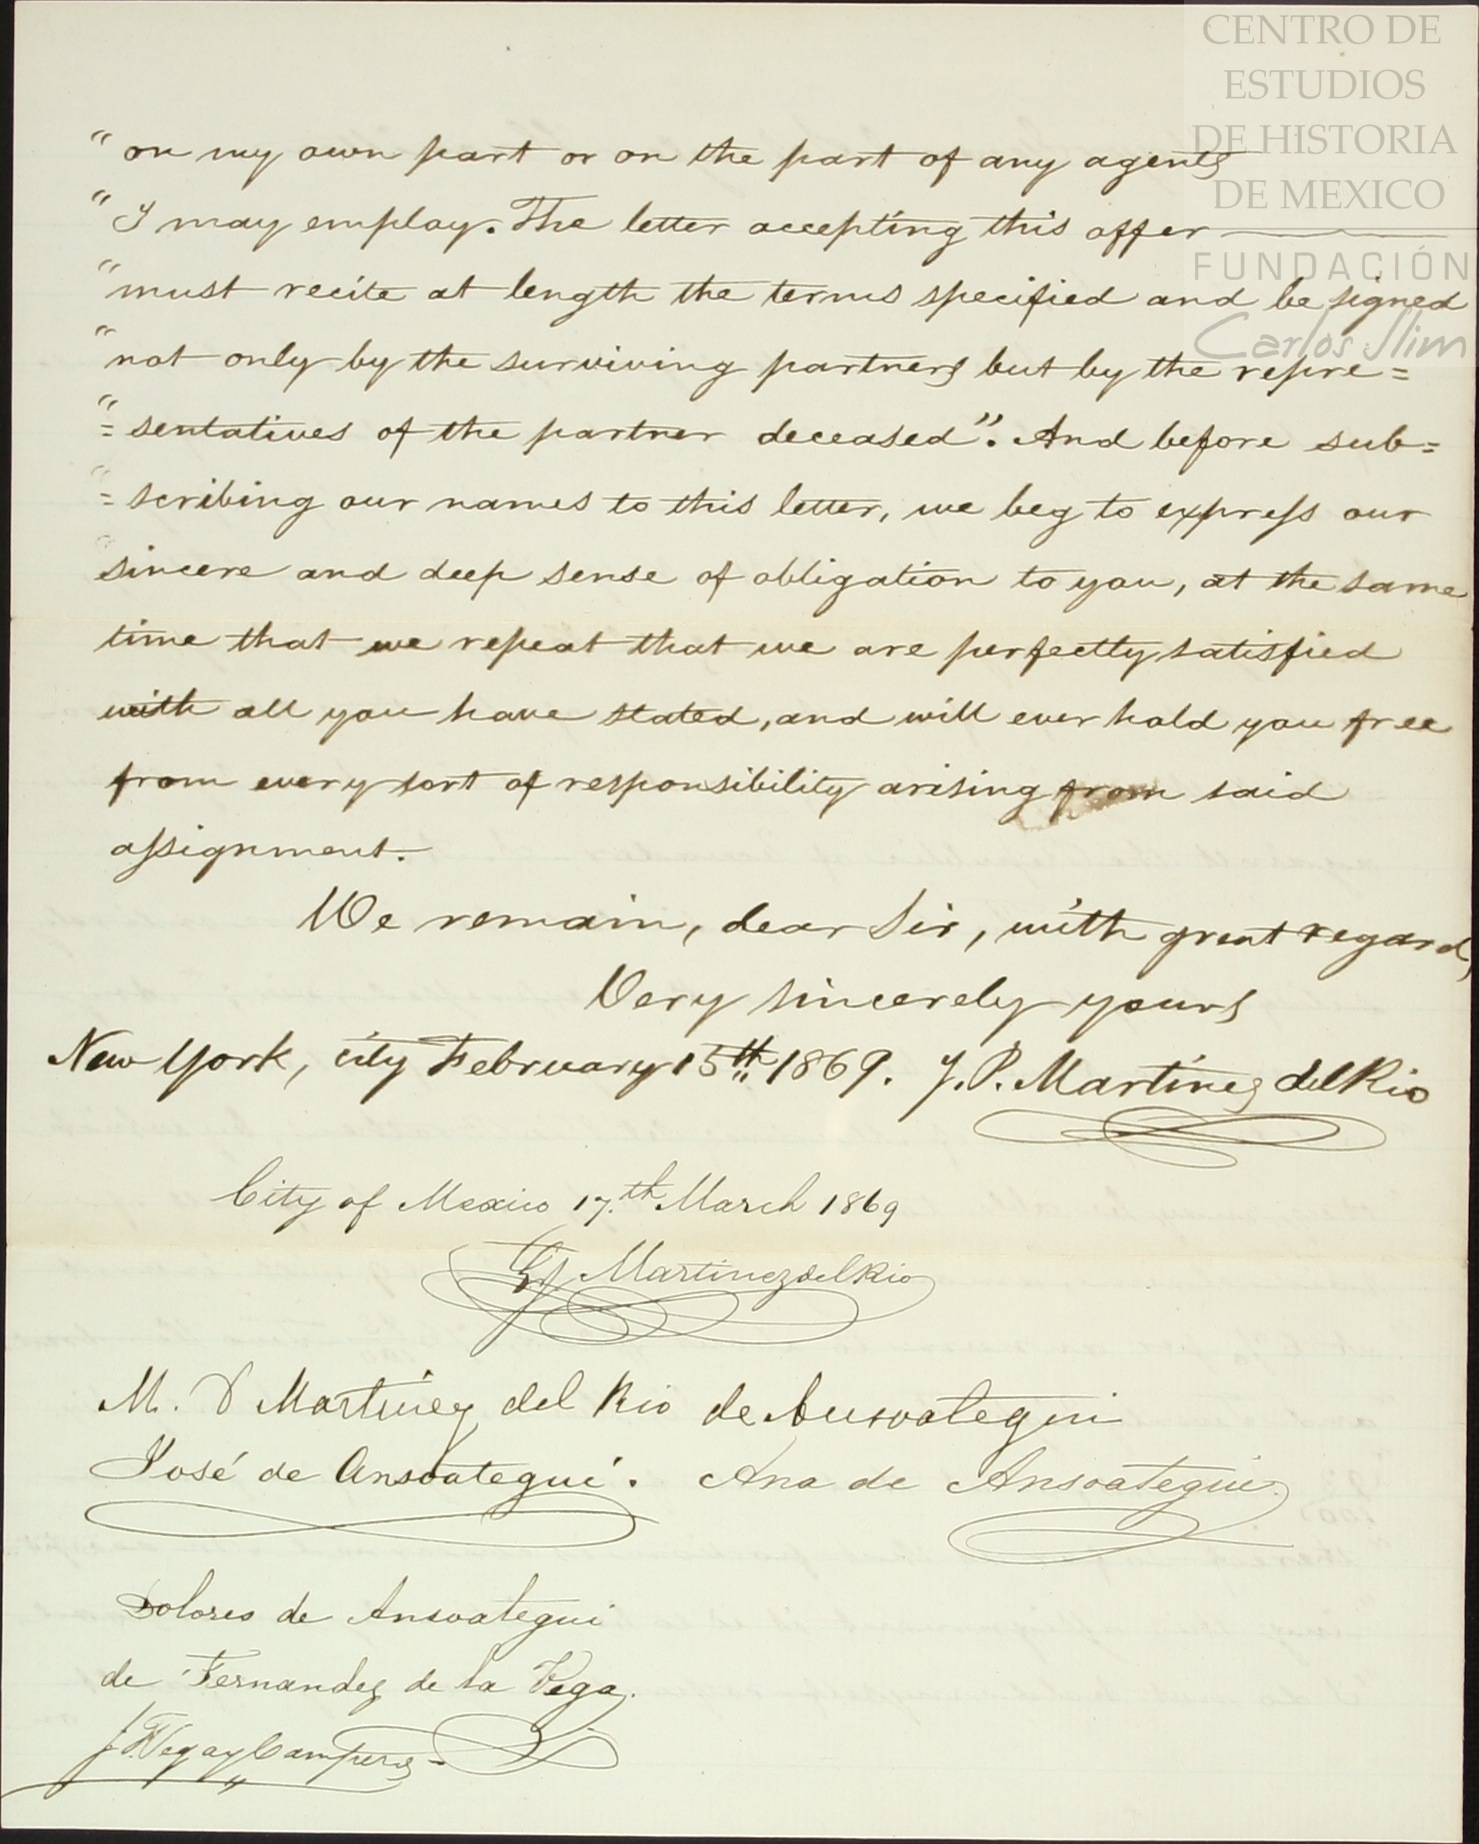 CENTRO DE
ESTUDIOS
DE HISTORIA
DE MEXICO
FUNDACIÓN
Carlos Slim
" on my own part or on the part of any agents
" I may employ. The letter accepting this offer
" must recite at length the terms specified and be signed
" not only by the surviving partners but by the repre=
" =sentatives of the partner deceased". And before sub=
=scribing our names to this letter, we beg to express our
sincere and deep sense of obligation to you, at the same
time that we repeat that we are perfectly satisfied
with all you have stated, and will ever hold you free
from every sort of responsibility arising from said
assignment.
We remain, dear Sir, with great regard,
Very sincerely yours
New York, city February 15th 1869. J. P. Martinez del Rio
City of Mexico 17.th March 1869
Martinez del Rio
M. D Martinez del Rio de Ansoategui
José de Ansoategui. Ana de Ansoategui.
Dolores de Ansoategui
de Fernandez de la Vega.
Vega y Campero